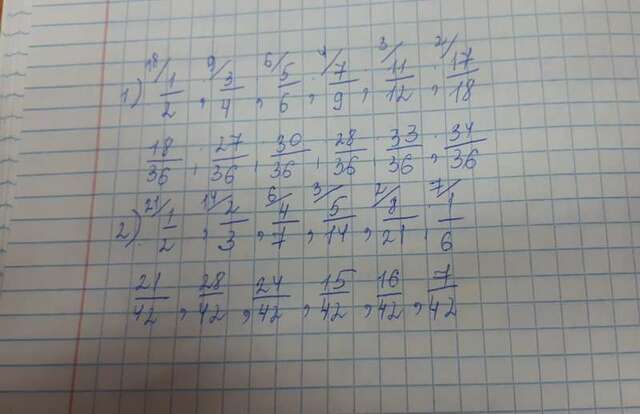 1) 18/ 1/2 , 9/ 3/4 , 6/ 5/6 , 4/ 7/9 , 3/ 11/12 , 2/ 17/18
18/36 , 27/36 , 30/36 , 28/36 , 33/36 , 34/36
2) 21/ 1/2 , 14/ 2/3 , 6/ 4/7 , 3/ 5/14 , 2/ 8/21 , 7/ 1/6
21/42 , 28/42 , 24/42 , 15/42 , 16/42 , 7/42